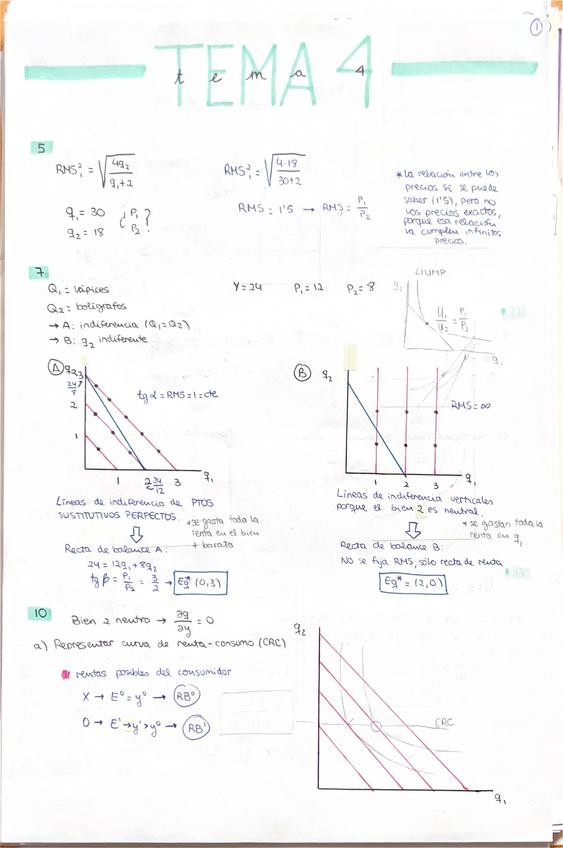 1
TEMA 4
t e m a 4
5
RMS₁² = √(4q₂ / q₁+2)
q₁ = 30
q₂ = 18
¿ P₁ P₂ ?
RMS₁² = √(4·18 / 30+2)
RMS = 1'5 → RMS = P₁/P₂
* la relación entre los
precios sí se puede
saber (1'5), pero no
los precios exactos,
porque esa relación
la cumplen infinitos
precios.
7
Q₁ = lápices
Q₂ = bolígrafos
→ A: indiferencia (Q₁=Q₂)
→ B: q₂ indiferente
Y=24 P₁=12 P₂=8
q₁
U₁/U₂ = P₁/P₂
q₁
A
q₂
3
24/8
2
1
tg α = RMS = 1 = cte
1 2 24/12 3 q₁
Líneas de indiferencia de PTOS
SUSTITUTIVOS PERFECTOS.
* se gasta toda la
renta en el bien
+ barato
Recta de balance A:
24 = 12q₁ + 8q₂
tg β = P₁/P₂ = 3/2 → Eq* (0,3)
B
q₂
RMS = ∞
1 2 3 q₁
Líneas de indiferencia verticales
porque el bien 2 es neutral.
* se gastan toda la
renta en q₁
Recta de balance B:
NO se fija RMS, sólo recta de renta
Eq* = (2,0)
10
Bien 2 neutro → ∂q/∂y = 0
a) Representar curva de renta-consumo (CRC)
rentas posibles del consumidor
X → E⁰ = y⁰ → RB⁰
O → E¹ → y¹ > y⁰ → RB¹
q₂
CRC
q₁